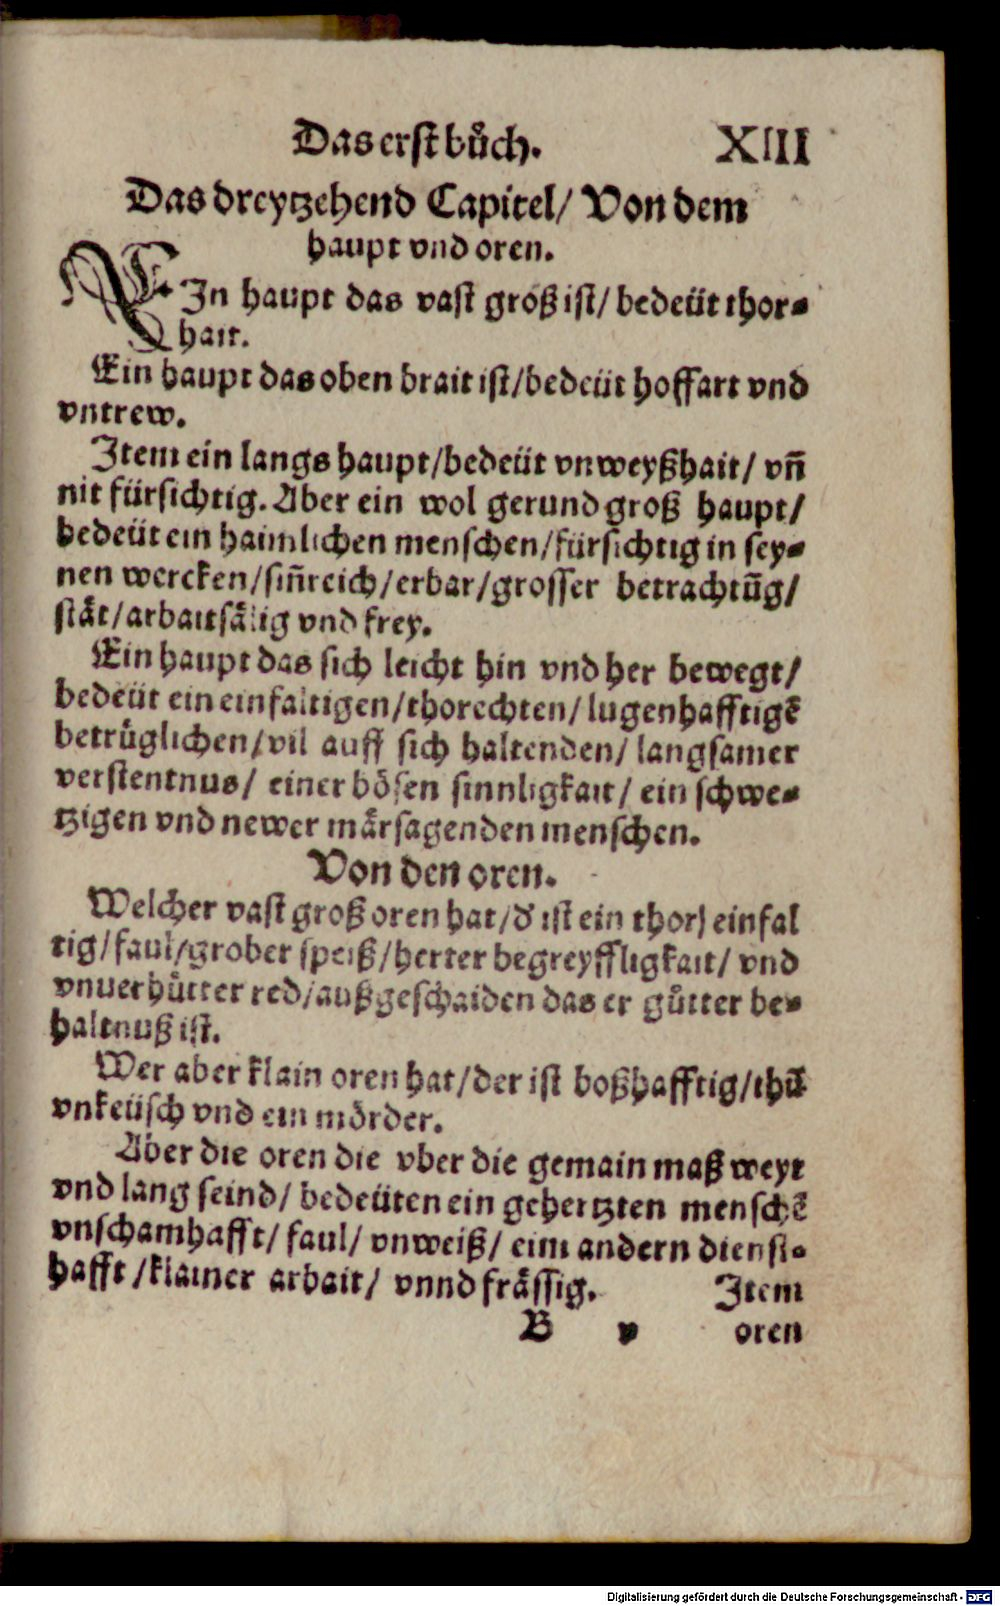 Das erst bůch. XIII
Das dreytzehend Capitel/ Von dem
haupt vnd oren.
EIn haupt das vast groß ist/ bedeüt thor-
hait.
Ein haupt das oben brait ist/bedeüt hoffart vnd
vntrew.
Item ein langs haupt/bedeüt vnweyßhait/ vñ
nit fürsichtig. Aber ein wol gerund groß haupt/
bedeüt ein haimlichen menschen/fürsichtig in sey-
nen wercken/siñreich/erbar/grosser betrachtũg/
stät/arbaitsälig vnd frey.
Ein haupt das sich leicht hin vnd her bewegt/
bedeüt ein einfaltigen/thorechten/lugenhafftigẽ
betrüglichen/vil auff sich haltenden/ langsamer
verstentnus/ einer bösen sinnligkait/ ein schwe-
tzigen vnd newer märsagenden menschen.
Von den oren.
Welcher vast groß oren hat/d' ist ein thor/ einfal
tig/faul/grober speiß/herter begreyffligkait/ vnd
vnuerhütter red/außgeschaiden das er gůtter be-
haltnuß ist.
Wer aber klain oren hat/der ist boßhafftig/thũ
vnkeüsch vnd ein mörder.
Aber die oren die vber die gemain maß weyt
vnd lang seind/ bedeüten ein gehertzten menschẽ
vnschamhafft/ faul/ vnweiß/ eim andern dienst-
hafft /klainer arbait/ vnnd frässig. Item
B v oren
Digitalisierung gefördert durch die Deutsche Forschungsgemeinschaft - DFG